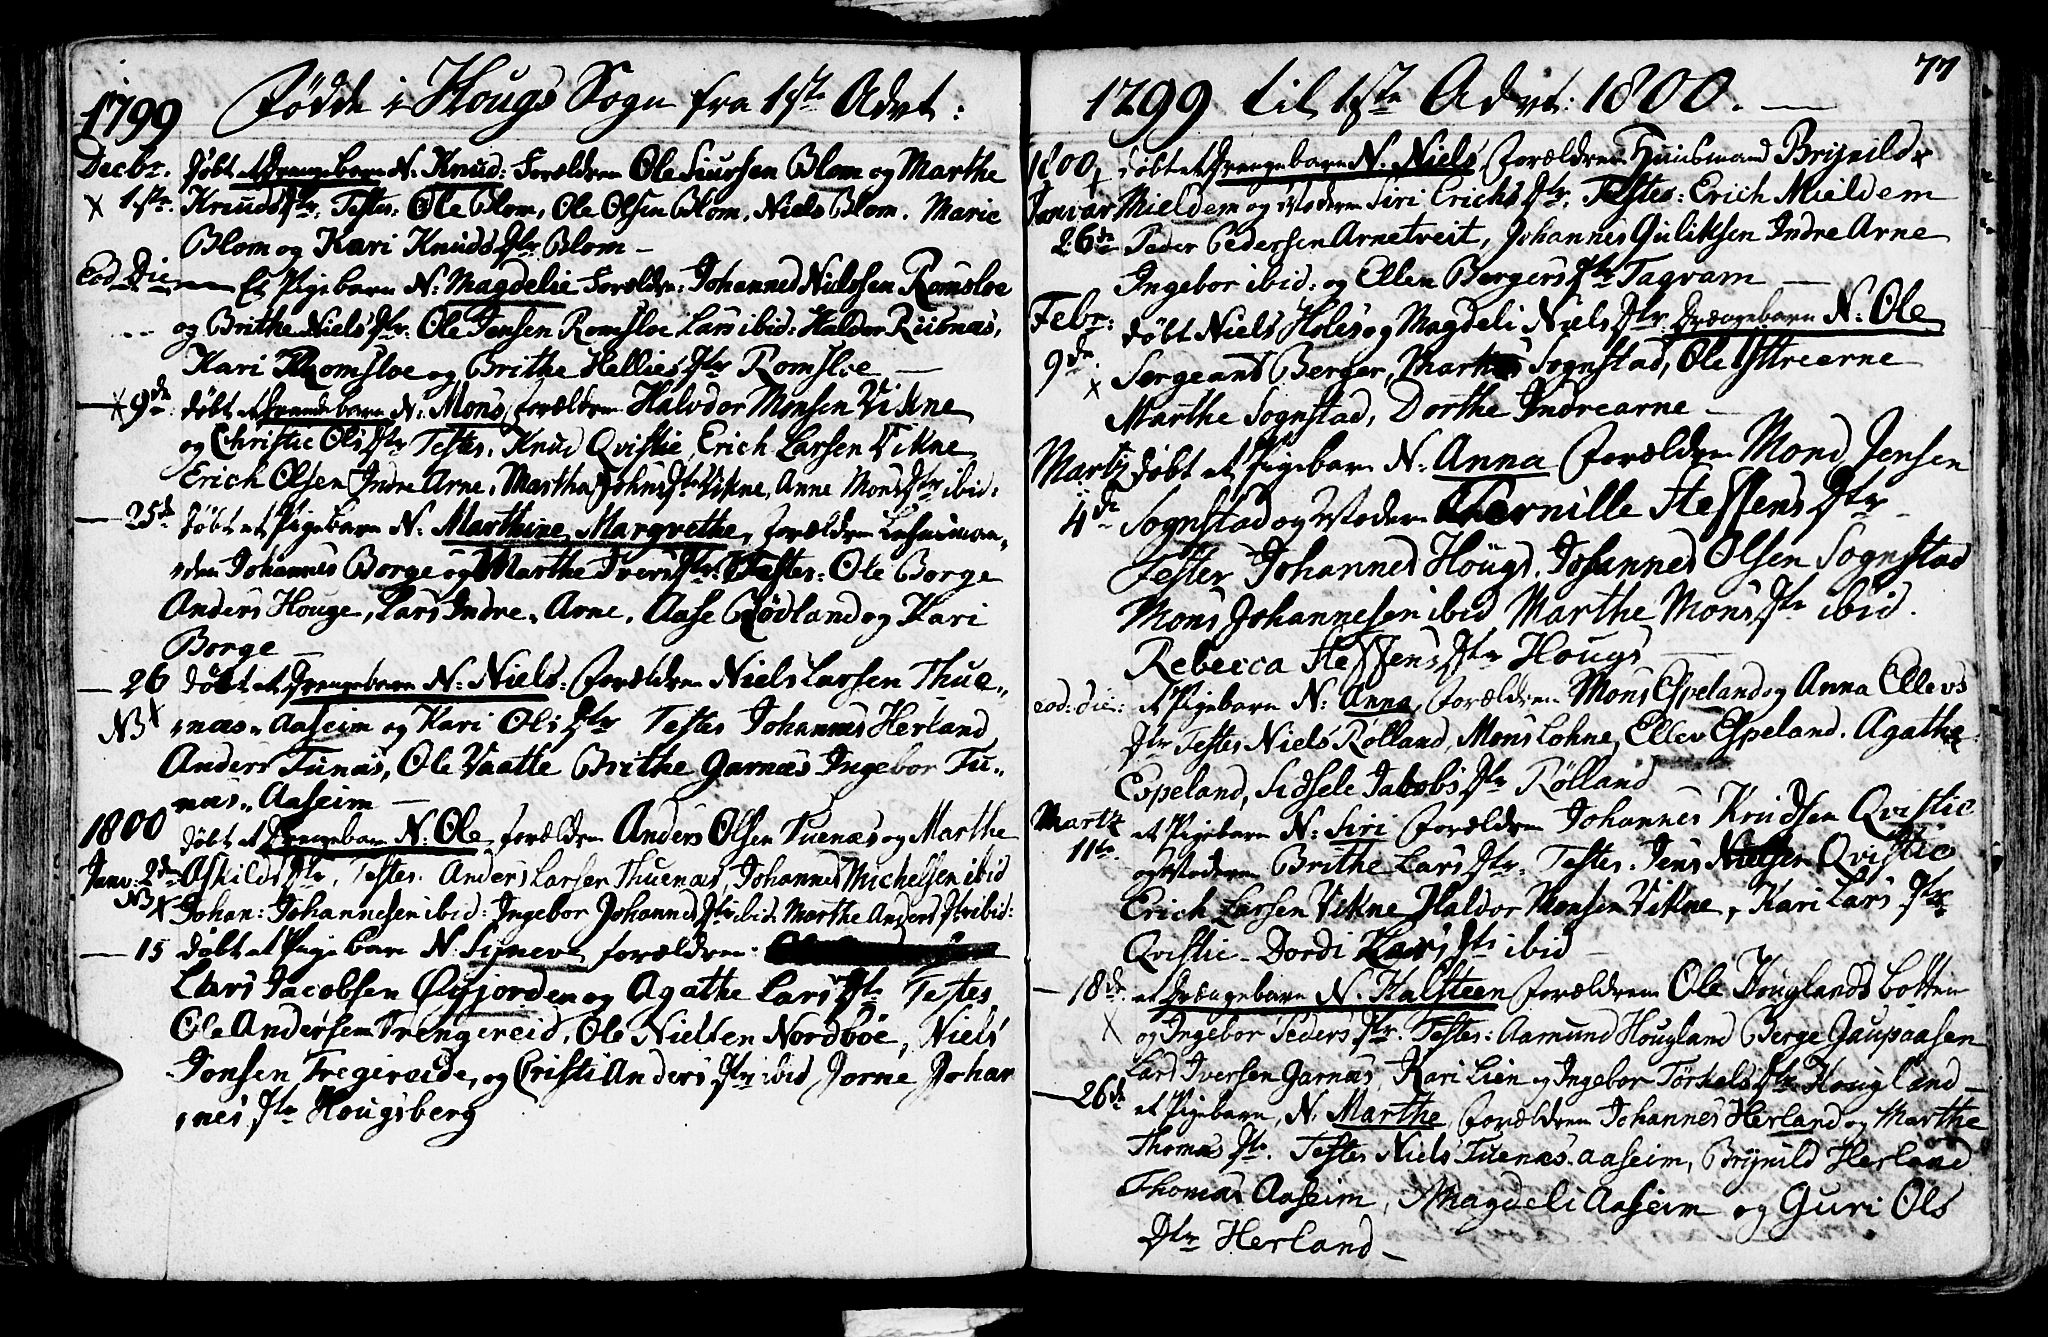 1799 Fødde i Hougs Sogn fra 1ste Advt:
Decbr. døbt et Drengebarn N. Knud: Forældren Ole Siursen Blom og Marthe
x 1ste. Knuds Dtr, Testes: Ole Blom, Ole Olsen Blom, Niels Blom. Marie
Blom og Kari Knuds Dtr Blom –
Eod. Die – Et Pigebarn N: Magdelie Forældre: Johannes Nielssen Romsloe
og Brithe Niels Dtr. Ole Jensen Romsloe Lars ibid: Haldor Risnæs,
Kari Romsloe og Brithe Hellies Dtr Romsloe –
– x 9de døbt et Drengebarn N: Mons, forældren Halvdor Monsen Vikne
og Christie Ols Dtr Testes. Knud Qvistie, Erich Larsen Vikne
Erich Olsen Indre Arne, Martha Johns Dtr Vikne, Anne Mons Dtr ibid:
– 25de døbt et Pigebarn N: Marthine Margrethe, forældren
den Johannes Borge og Marthe Ivers Dtr. Testes: Ole Borge
Anders Houge, Lars Indre Arne. Aase Rødland og Kari
Borge –
– 26 døbt et Drengebarn N: Niels: forældren Niels Larsen Thue„
N3 x „næs„ Aaseim og Kari Ols Dtr Testes Johannes Herland
Anders Tunæs, Ole Vaatte Brithe Garnæs Ingebor Tu„
næs„ Aaseim –
1800 døbt et Drengebarn N: Ole, forældren Anders Olsen Tuenæs og Marthe
Janv: 2den Askilds Dtr, Testes. Anders Larsen Thuenæs, Johannes Michelsen ibid
N3 x Johan: Johannesen ibid: Ingebor Johannes Dtr ibid. Marthe Anders Dtr ibid:
– 15 døbt et Pige barn N. Signeve forældren:
Lars Jacobsen Øyjorden og Agathe Lars Dtr Testes
Ole Andersen Trengereid, Ole Nielsen Nordbøe, Niels
Jonsen Tregireide, og Cristi Anders Dtr ibid, Jorne Johan
„nes Dtr Hougsberg
1799 til 1ste Advt: 1800. – 77
1800, døbt et Drengebarn N. Niels forældren Huusmand Brynild
Janvar Mieldem og Moderen Siri Erichs Dtr, Testes: Erich Mieldem
26de Peder Pedersen Arnetveit, Johannes Guliksen Indre Arne
Ingebor ibid: og Ellen Bergers Dtr Tagvam –
Febr: døbt Niels Holes og Magdeli Niels Dtr Drengebarn N: Ole
9de x Sergeant Berger, Sognstad, Ole Ystrearne
Marthe Sognstad, Dorthe Indrearne –
Martz døbt et Pigebarn N: Anna forældren Mons Jensen
4de Sognstad og Moderen Pernille Steffens Dtr
Testes Johannes Hougs. Johannes Olsen Sognstad
Mons Johannesen ibid Marthe Mons Dtr ibid.
Rebecca Steffens Dtr Hougs –
eod: die: et Pigebarn N: Anna, forældren Mons Espeland og Anna Ellevs
Dtr Testes Niels Rølland, Mons Lohne, Ellev Espeland. Agathe
Espeland, Sidsele Jacobs Dtr Rølland
Martz et Pigebarn N: Siri forældren Johannes Knudsen Qvistie
11te og Moderen Brithe Lars Dtr. Testes. Jens Nielsen Qvistie
Erich Larsen Vikne Haldor Monsen Vikne, Kari Lars Dtr
Qvistie – Dordi Lars Dtr ibid –
– 18de. et Drengebarn N. Halsteen forældren Ole Houglands botten
x og Ingebor Peders Dtr. Testes: Aamund Hougland Berge Gaupaasen
Lars Iversen Garnæs, Kari Lien og Ingebor Torkels Dtr Hougland –
– 26de et Pigebarn, N. Marthe, forældren Johannes Herland og Marthe
Thomas Dtr. Testes Niels Tuenæs. aaseim, Brynild Herland
Thomas Aaseim, Magdeli Aaseim og Guri Ols
Dtr Herland –